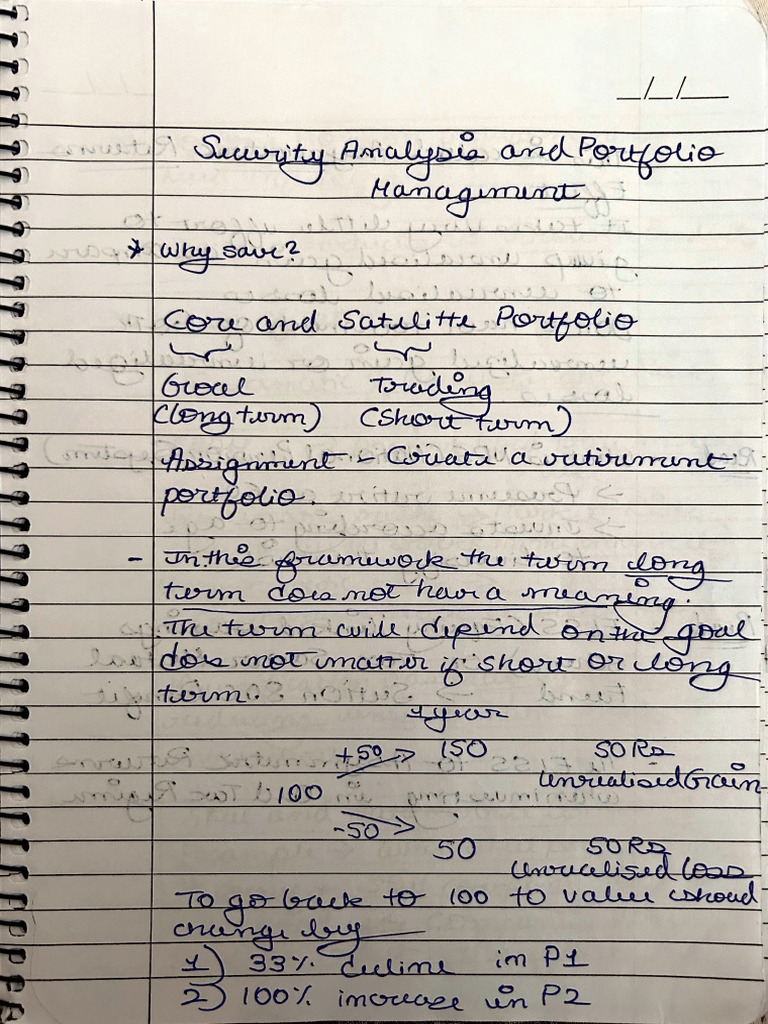 __/__/____
Security Analysis and Portfolio
Management
* Why save?
Core and Satelitte Portfolio
Goal Trading
(long term) (short term)
Assignment - Create a retirement
portfolio.
- In this framework the term long
term does not have a meaning.
The term will depend on the goal
does not matter if short or long
term.
1 year
+50 150 50 Rs
Unrealised Gain
100
-50
50 50 Rs
Unrealised loss
To go back to 100 to value should
change by
1) 33% decline in P1
2) 100% increase in P2